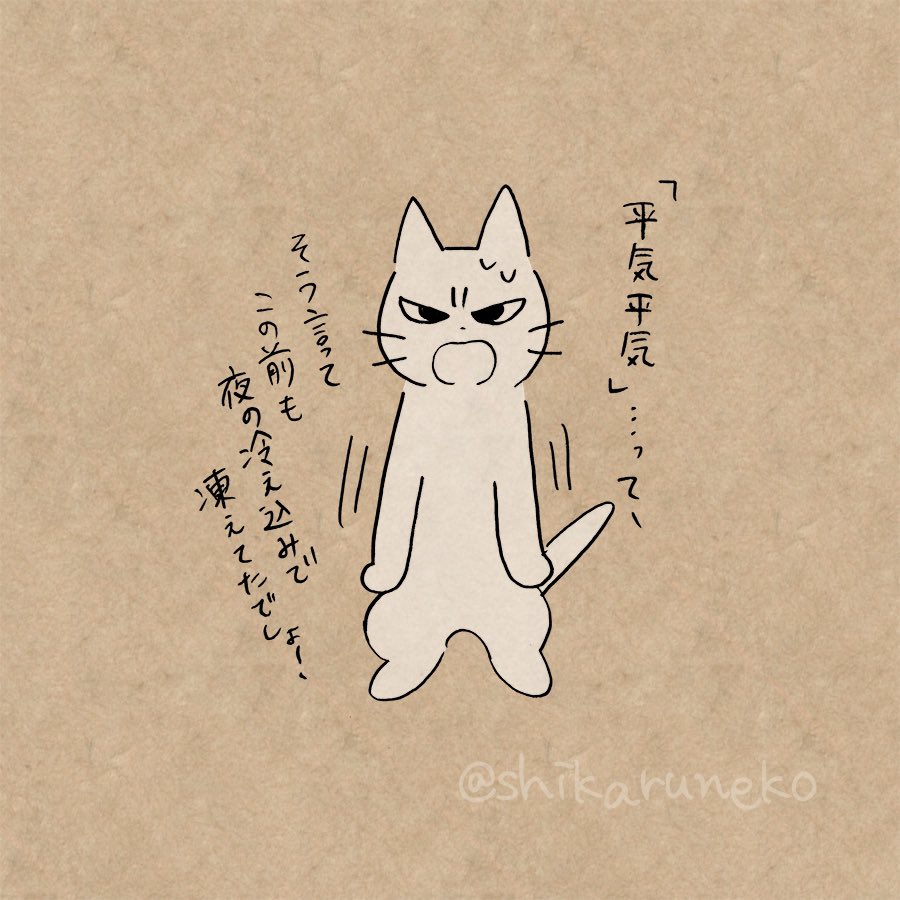 「平気平気」…って、
そう言って
この前も
夜の冷え込みで
凍えてたでしょー、
@shikaruneko